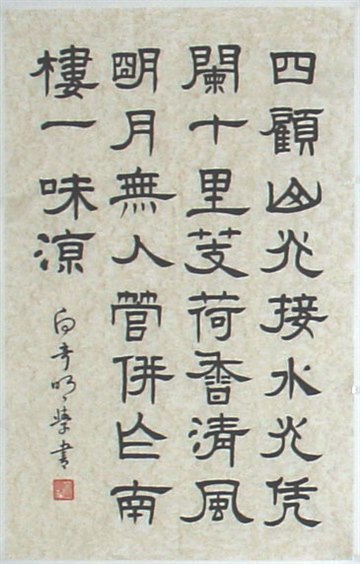 四顧山光接水光凭
闌十里芰荷香清風
明月無人管併作南
樓一味涼
書